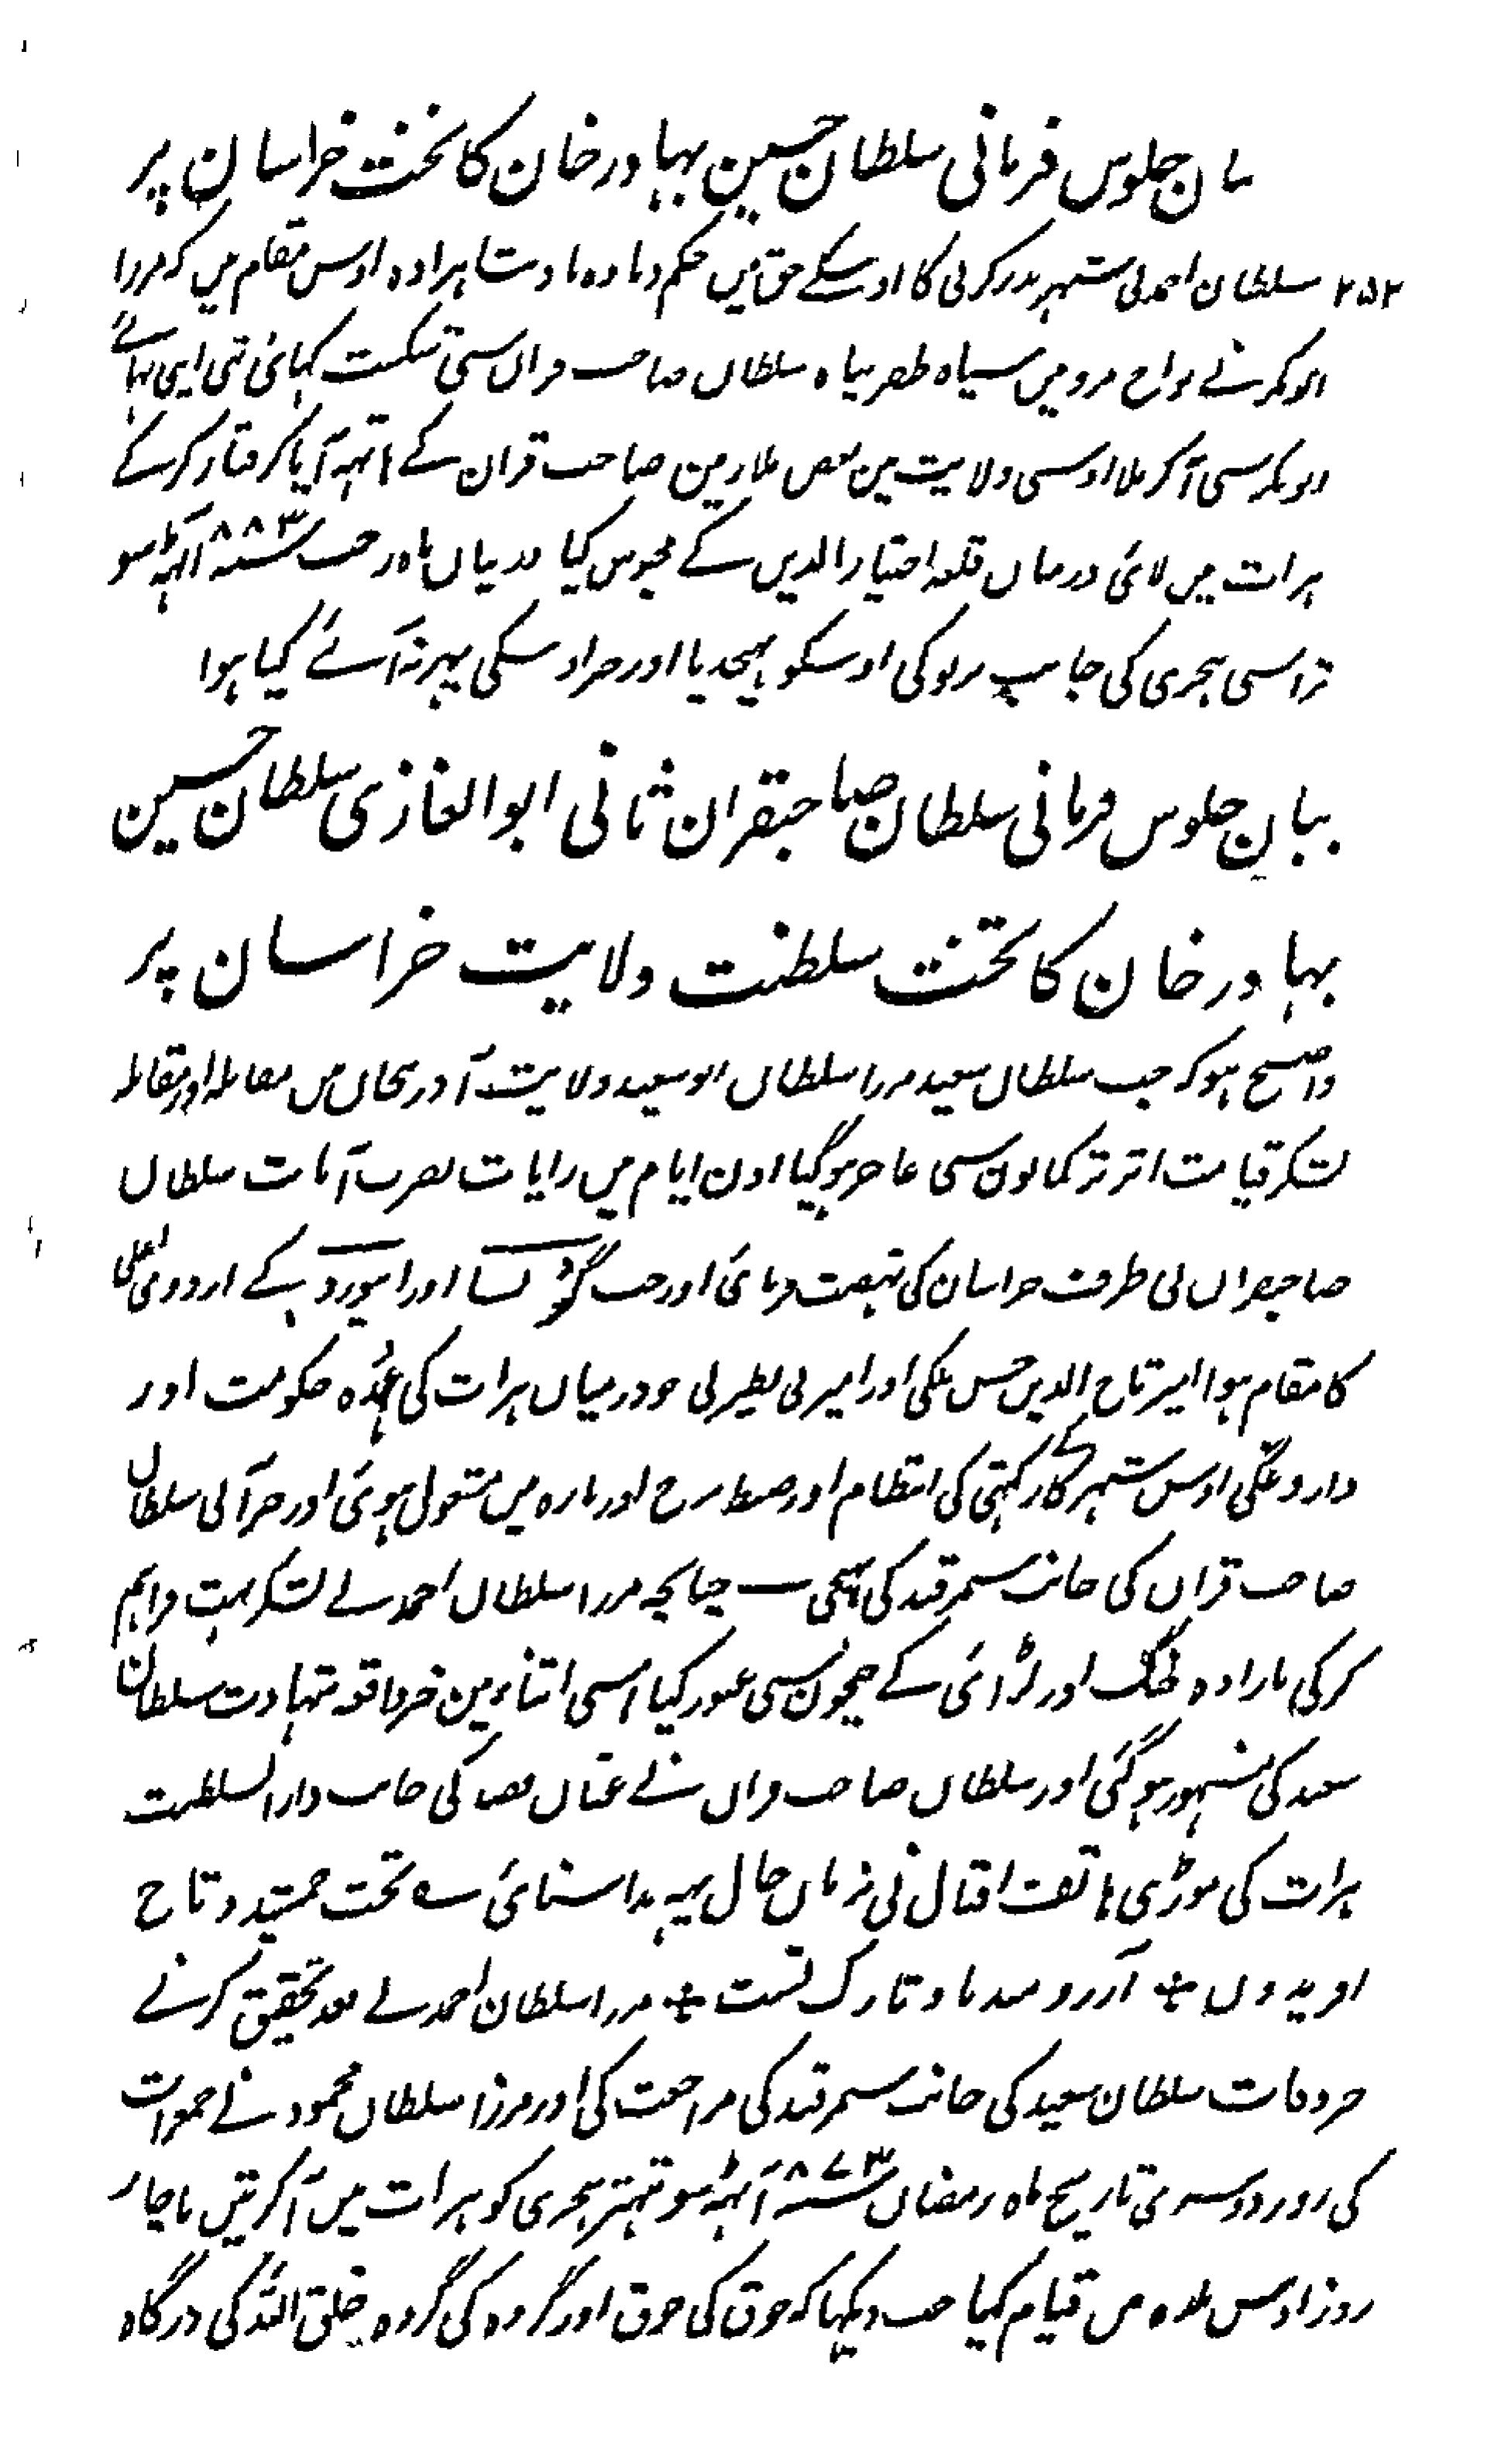 بیان جلوس فرمانی سلطان حسین بہادر خان کا تخت خراسان پر
۲۵۲ سلطان احمد نی شہر بدر کرنی کا اوسکے حق میں حکم دیا وہ بادشاہزادہ اوس مقام میں کہ مرزا
ابوبکر نے نواح مرو میں سپاہ ظفر پناہ سلطان صاحب قران سی شکست کہائی تہی اپنی بہائی
ابوبکر سی آکر ملا اوسی ولایت مین بعض ملازمین صاحب قران کے ہاتہہ آیا گرفتار کر کے
ہرات میں لائی درمیان قلعہ اختیار الدین کے محبوس کیا درمیان ماہ رجب ۸۸۳ سنہ آٹہہ سو
تراسی ہجری کی جانب اوسکو بہیجدیا اور خبر اوسکی پہر نہ آئے کیا ہوا
بیان جلوس فرمانی سلطان صاحبقران ثانی ابوالغازی سلطان حسین
بہادر خان کا تخت سلطنت ولایت خراسان پر
واضح ہو کہ جب سلطان سعید مرزا سلطان ابو سعید ولایت آذربیجان میں مقابلہ اور مقاتلہ
لشکر قیامت اثر ترکمانون سی عاجز ہوگیا اون ایام میں رایات نصرت آیات سلطان
صاحبقران نی طرف خراسان کی نہضت فرمائی اور جب نسا اور ابیورد کے اردوی اعلی
کا مقام ہوا امیر تاج الدین حسن ملکی اور امیر لی نظیر لی جو درمیان ہرات کی عہدہ حکومت اور
داروغگی اوس شہر کے کار کہتی کی انتظام اور ضبط برج اور بارہ میں مشغول ہوئی اور خبر آنی سلطان
صاحب قران کی جانب سمرقند کی بہیجی — چنانچہ مرزا سلطان احمد نے لشکر بہت فراہم
کر کی بارادہ جنگ اور لڑائی کے جیحون سی عبور کیا اسی اثناء مین خبر واقعہ شہادت سلطان
سعید کی مشہور ہوگئی اور سلطان صاحب قران نے عنان قصد کی جانب دار السلطنت
ہرات کی موڑی ہاتف اقبال نی زبان حال یہہ ندا سنائی ؎ تخت جمشید و تاج
افریدون ٭ آرزومند با و تارک تست ٭ مرزا سلطان احمد نے بعد تحقیق کرنے
خبر وفات سلطان سعید کی جانب سمرقند کی مراجعت کی اور مرزا سلطان محمود نے جمعرات
کی روز دوسری تاریخ ماہ رمضان ۸۷۳ سنہ آٹہہ سو تہتر ہجری کو ہرات میں آکر تین یا چار
روز اوس بلدہ میں قیام کیا جب دیکہا کہ جوق کی جوق اور گروہ کی گروہ خلق اللہ کی درگاہ